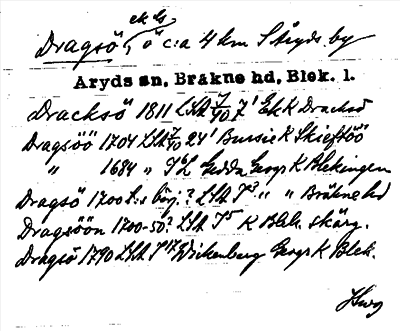 ek ls
Dragsö, ö c:a 4 km S Aryds by
Aryds sn, Bräkne hd, Blek. l.
Dracksö 1811 LSA 7/40 7' Ek K Dracksö
Dragsöö 1704 LSA 7/40 24' Bussie K Skieftöö
" 1684 " Gedda Geogr K Blekingen
Dragsö 1700 t:s börj.? LSA S3 " " Bräkne hd
Dragsöön 1700-50? LSA S5 K Blek. skärg.
Dragsö 1790 LSA S17 Wickenberg Geogr K Blek.